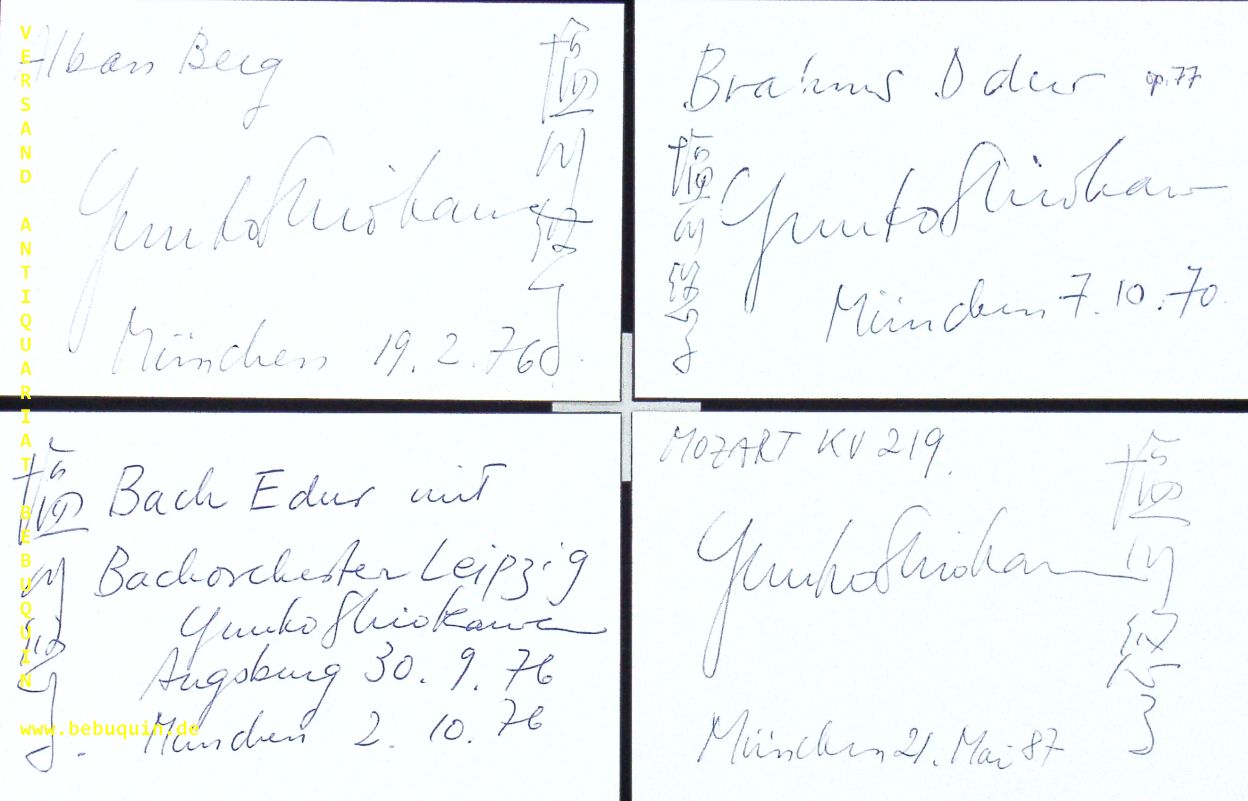 VERSAND ANTIQUARIAT BEBUQUIN
Alban Berg
Yuuko Shiokawa
塩川悠子
München 19.2.76
Brahms D dur op.77
塩川悠子
Yuuko Shiokawa
München 7.10.70
塩川悠子
Bach E dur mit
Bachorchester Leipzig
Yuuko Shiokawa
Augsburg 30.9.76
München 2.10.76
www.bebuquin.de
MOZART KV 219.
Yuuko Shiokawa
塩川悠子
München 21. Mai 87